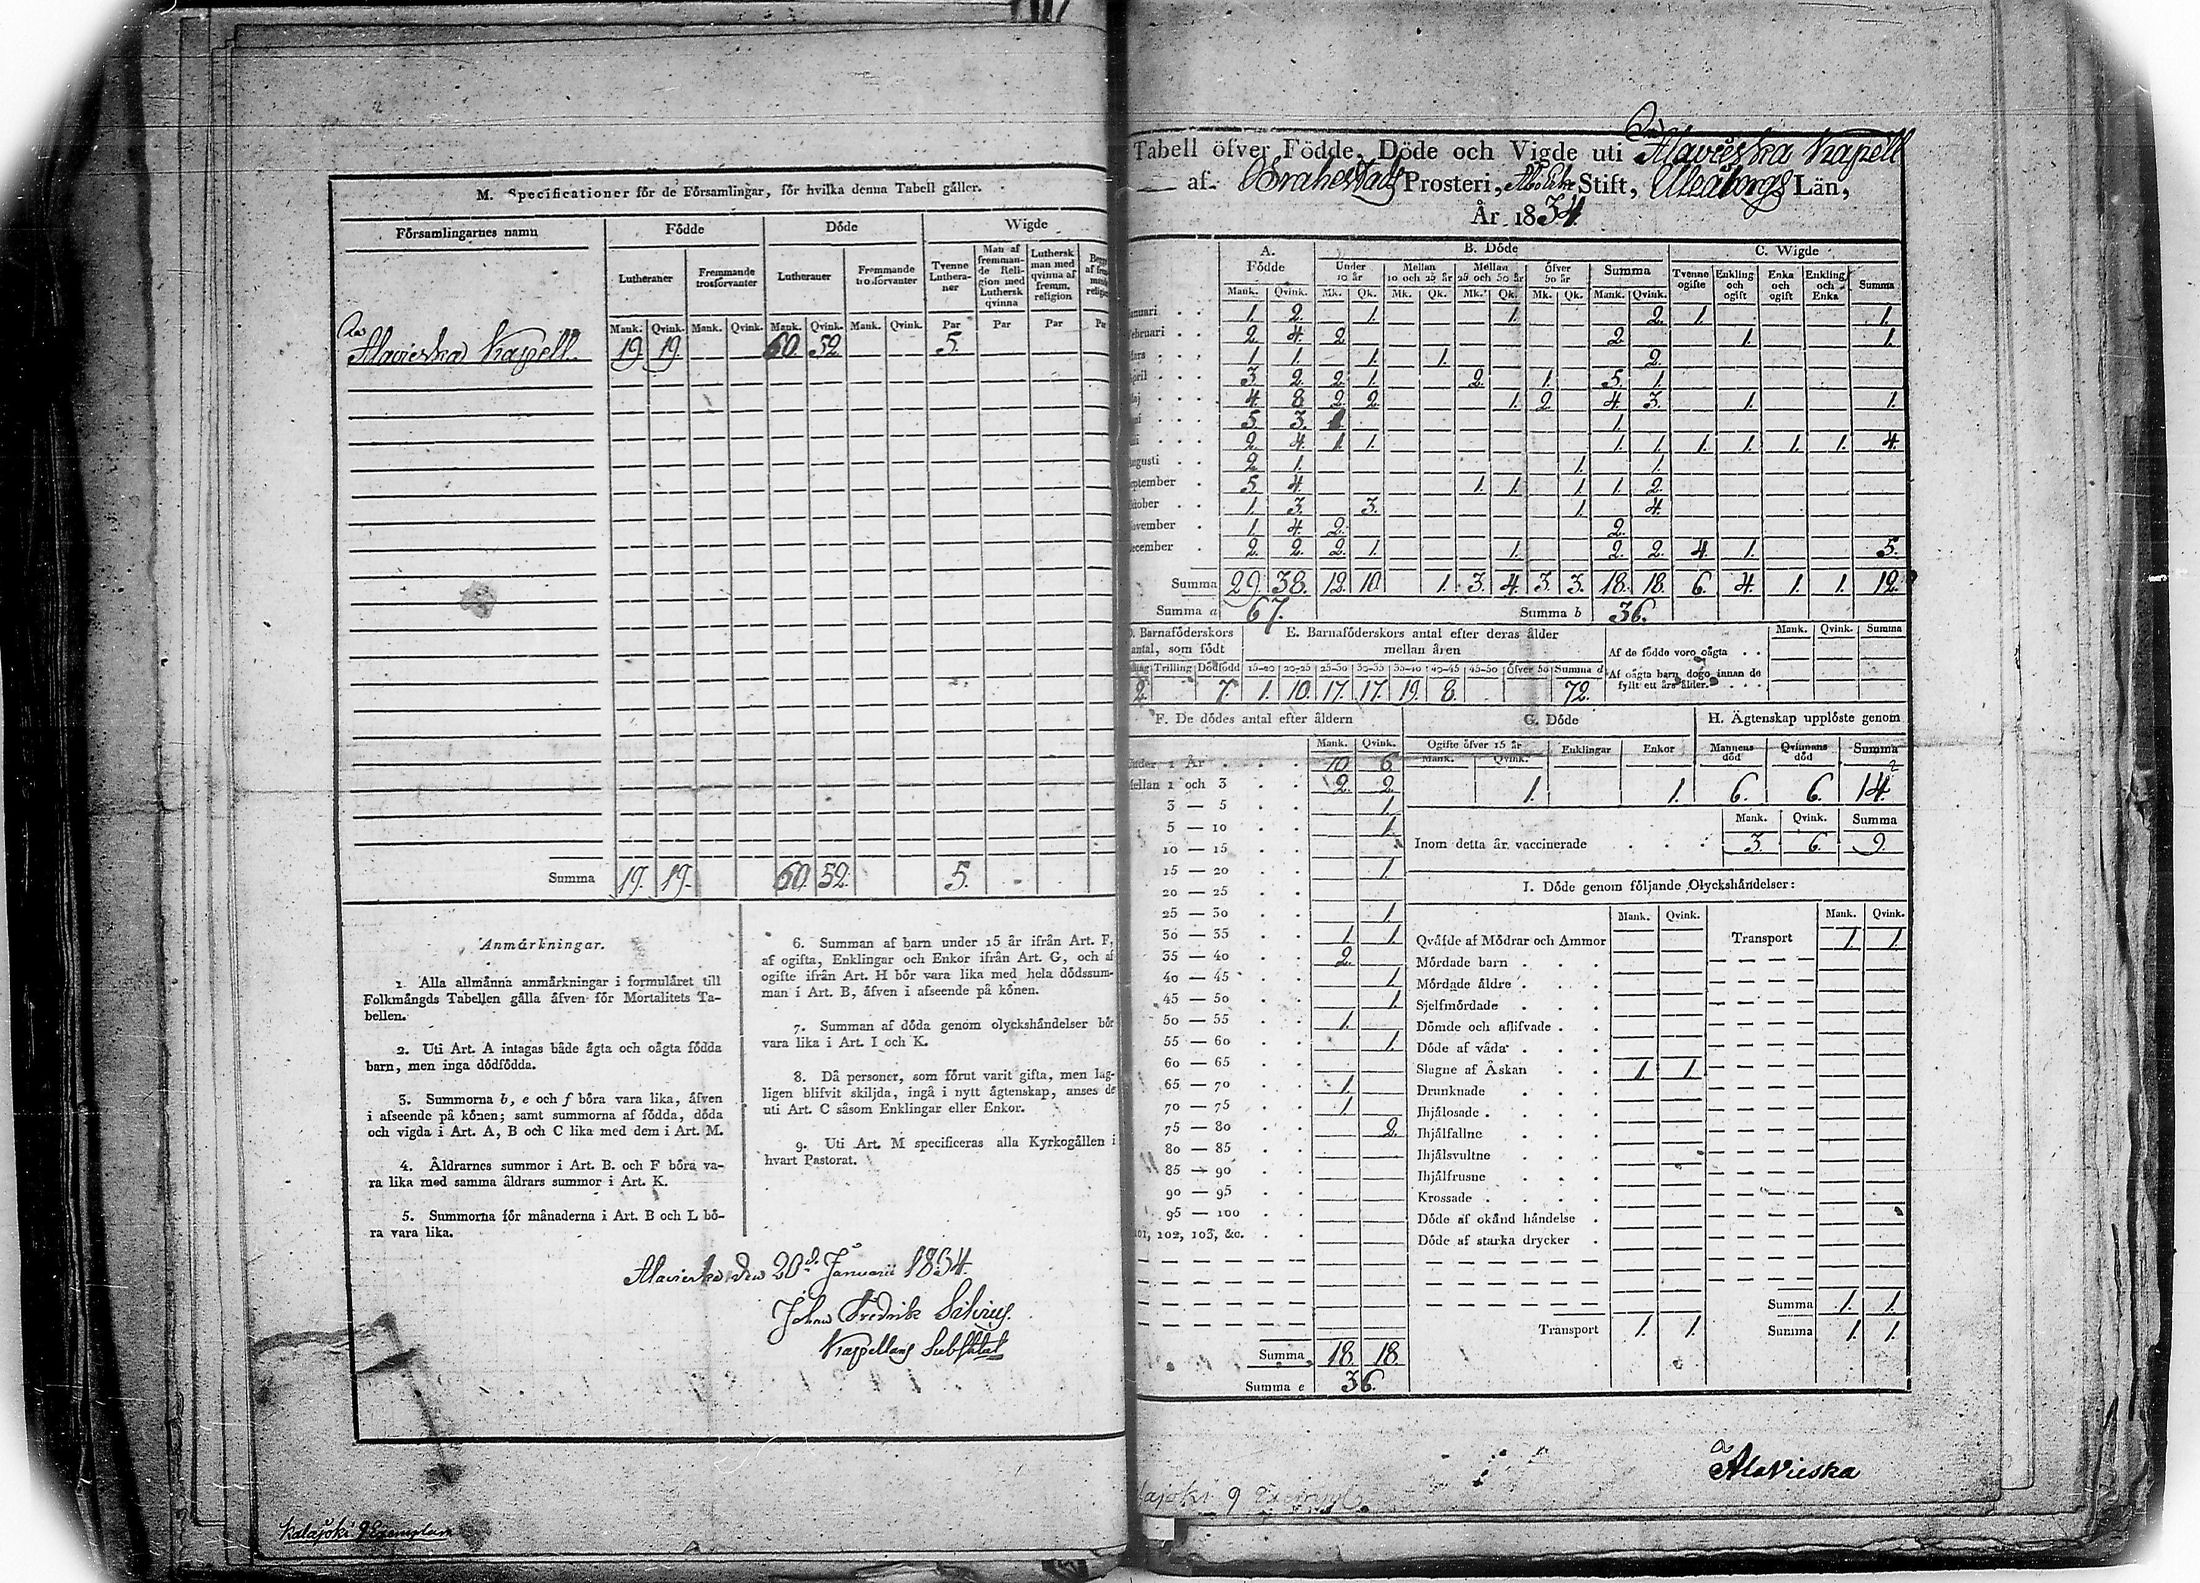 M. Specificationer för de Församlingar, för hvilka denna Tabell gäller.
Församlingarnes namn Födde Döde Wigde
Lutheraner Fremmande trosförvanter Lutheraner Fremmande trosförvanter Tvenne Lutheraner Man af fremmande Religion med Luthersk qvinna Luthersk man med qvinna af fremm. religion
Mank. Qvink. Mank. Qvink. Mank. Qvink. Mank. Qvink. Par Par Par
Alavieska Kapell 19 19 60 52 5.
Summa 19. 19. 60. 52. 5.
Anmärkningar.
1. Alla allmänna anmärkningar i formuläret till
Folkmängds Tabellen gälla äfven för Mortalitets Ta-
bellen.
2. Uti Art. A intagas både ägta och oägta födda
barn, men inga dödfödda.
3. Summorna b, e och f böra vara lika, äfven
i afseende på könen; samt summorna af födda, döda
och vigda i Art. A, B och C lika med dem i Art. M.
4. Åldrarnes summor i Art. B. och F böra va-
ra lika med samma åldrars summor i Art. K.
5. Summorna för månaderna i Art. B och L bö-
ra vara lika.
6. Summan af barn under 15 år ifrån Art. F,
af ogifta, Enklingar och Enkor ifrån Art. G, och af
ogifte ifrån Art. H bör vara lika med hela dödssum-
man i Art. B, äfven i afseende på könen.
7. Summan af döda genom olyckshändelser bör
vara lika i Art. I och K.
8. Då personer, som förut varit gifta, men lag-
ligen blifvit skiljda, ingå i nytt ägtenskap, anses de
uti Art. C såsom Enklingar eller Enkor.
9. Uti Art. M specificeras alla Kyrkogällen i
hvart Pastorat.
Alavieska den 20d. Januarii 1834.
Johan Fredrik
Kapellans Substitut
Kalajoki 9 Exemplare
Tabell öfver Födde, Döde och Vigde uti Alavieska Kapell
af Brahestads Prosteri, Åbo Erke Stift, Uleåborgs Län,
År 1834.
A. Födde B. Döde C. Wigde
Under 10 år Mellan 10 och 25 år Mellan 25 och 50 år Öfver 50 år Summa Tvenne ogifte Enkling och ogift Enka och ogift Enkling och Enka Summa
Mank. Qvink. Mk. Qk. Mk. Qk. Mk. Qk. Mk. Qk. Mank. Qvink.
Januari 1. 2. 1. 1. 2. 1. 1.
Februari 2 4. 2 2. 1. 1.
Mars 1 1. 1. 1. 2.
April 3 2. 2. 1. 2. 1. 5. 1.
Maj 4. 8 2. 2. 1. 2. 4. 3. 1. 1.
5. 3. 1. 1.
2. 4. 1 1. 1. 1. 1. 1. 1. 1. 4.
Augusti 2 1. 1. 1.
September 5. 4. 1. 1. 1. 1. 2.
October 1. 3. 3. 1. 4.
November 1 4. 2. 2.
December 2. 2. 2. 1. 1. 2. 2. 4. 1. 5.
Summa 29. 38. 12. 10. 1. 3. 4. 3. 3. 18. 18. 6. 4. 1. 1. 12.
Summa a 67. Summa b 36.
D. Barnaföderskors antal, som födt E. Barnaföderskors antal efter deras ålder mellan åren Mank. Qvink. Summa
Trilling Dödfödd 15-20 20-25 25-30 30-35 35-40 40-45 45-50 Öfver 50 Summa d
2. 7. 1. 10. 17. 17. 19. 8. 72.
Af de födde voro oägta
Af oägta barn dogo innan de fyllt ett års ålder.
F. De dödes antal efter åldern G. Döde H. Ägtenskap upplöste genom
Mank. Qvink. Ogifte öfver 15 år Enklingar Enkor Mannens död Qvinnans död Summa
Mank. Qvink.
1. 1. 6. 6. 14.
Under 1 År 10 6
Mellan 1 och 3 2. 2.
3 — 5 1.
5 — 10 1.
10 — 15
15 — 20 1
20 — 25
25 — 30 1.
30 — 35 1 1.
35 — 40 2.
40 — 45 1.
45 — 50 1.
50 — 55 1.
55 — 60 1.
60 — 65
65 — 70 1.
70 — 75 1.
75 — 80 2.
80 — 85
85 — 90
90 — 95
95 — 100
101, 102, 103, &c.
Summa 18 18
Summa e 36.
Mank. Qvink. Summa
Inom detta år vaccinerade 3. 6. 9.
I. Döde genom följande Olyckshändelser:
Mank. Qvink. Mank. Qvink.
Qväfde af Mödrar och Ammor Transport 1 1
Mördade barn
Mördade äldre
Sjelfmördade
Dömde och aflifvade
Döde af våda
Slagne af Åskan 1. 1.
Drunknade
Ihjälosade
Ihjälfallne
Ihjälsvultne
Ihjälfrusne
Krossade
Döde af okänd händelse
Döde af starka drycker
Summa 1. 1.
Transport 1. 1. Summa 1. 1.
Alavieska